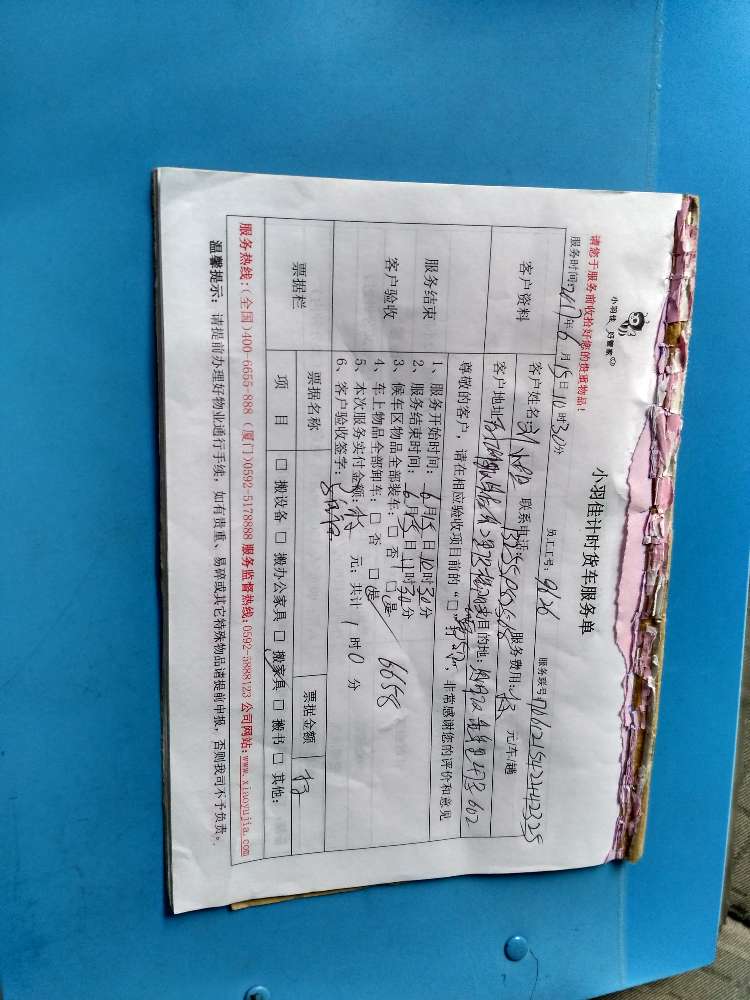 小羽佳 好管家
小羽佳计时货车服务单
请您于服务前收拾好您的贵重物品!
服务时间:2017年6月15日10时30分 员工工号:9626 服务联号:
客户资料
客户姓名:刘小姐 联系电话: 服务费用: 元/车/趟
客户地址: 目的地: 602
服务结束
客户验收
尊敬的客户,请在相应验收项目前的“□”打“√”,非常感谢您的评价和意见
1、服务开始时间:6月15日10时30分
2、服务结束时间:6月15日11时30分
3、候车区物品全部装车:□否 □是
4、车上物品全部卸车:□否 □是 6658
5、本次服务实付金额: 元;共计 1时0分
6、客户验收签字:
票据栏
票据名称 票据金额
项目 □搬设备 □搬办公家具 □搬家具 □搬书 □其他:
服务热线:(全国)400-6655-888 (厦门)0592-5178888 服务监督热线:0592-5888123 公司网站:www.xiaoyujia.com
温馨提示:请提前办理好物业通行手续,如有贵重、易碎或其它特殊物品请提前申报,否则我司不予负责。